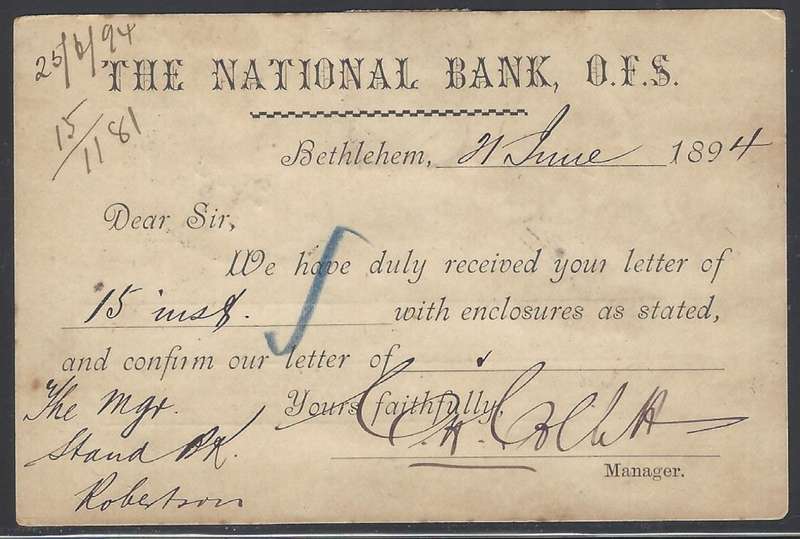 25/6/94
THE NATIONAL BANK, O.F.S.
15/1181
Bethlehem, 21 June 1894
Dear Sir,
We have duly received your letter of
15 inst. with enclosures as stated,
and confirm our letter of
Yours faithfully,
The Mgr.
Stand Bk.
Robertson
Manager.